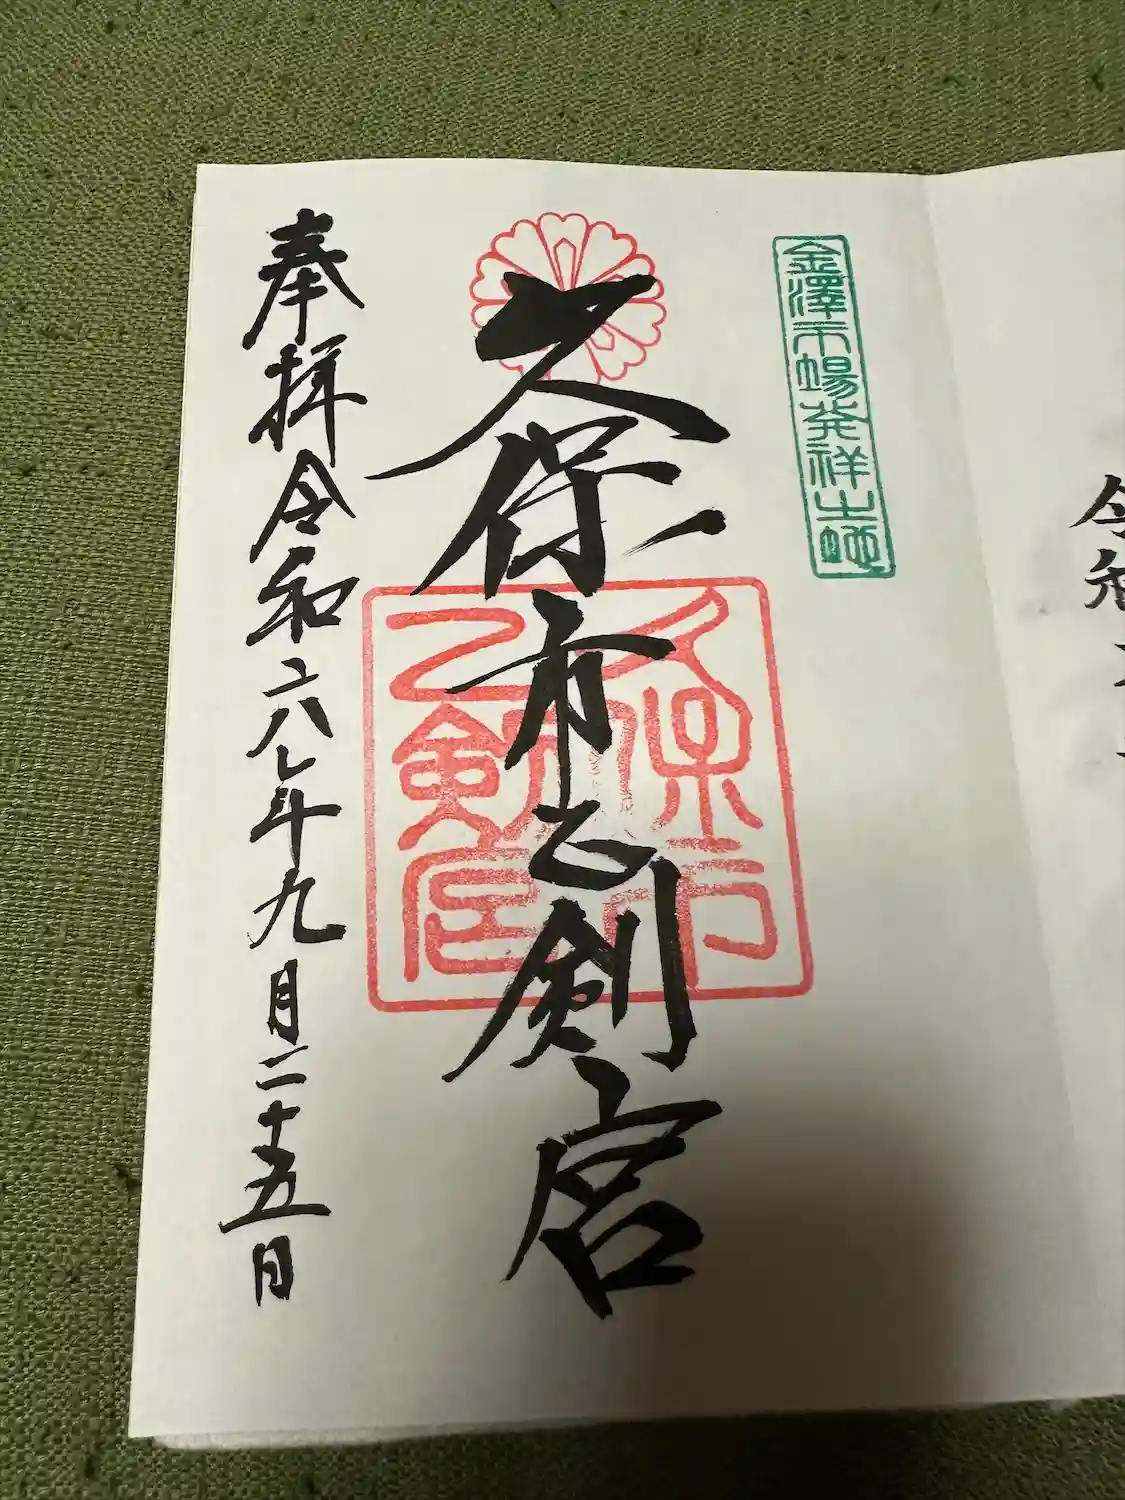 金澤市場発祥之地
久保市乙剣宮
久保市
乙剣宮
奉拝 令和六年九月二十五日
令和